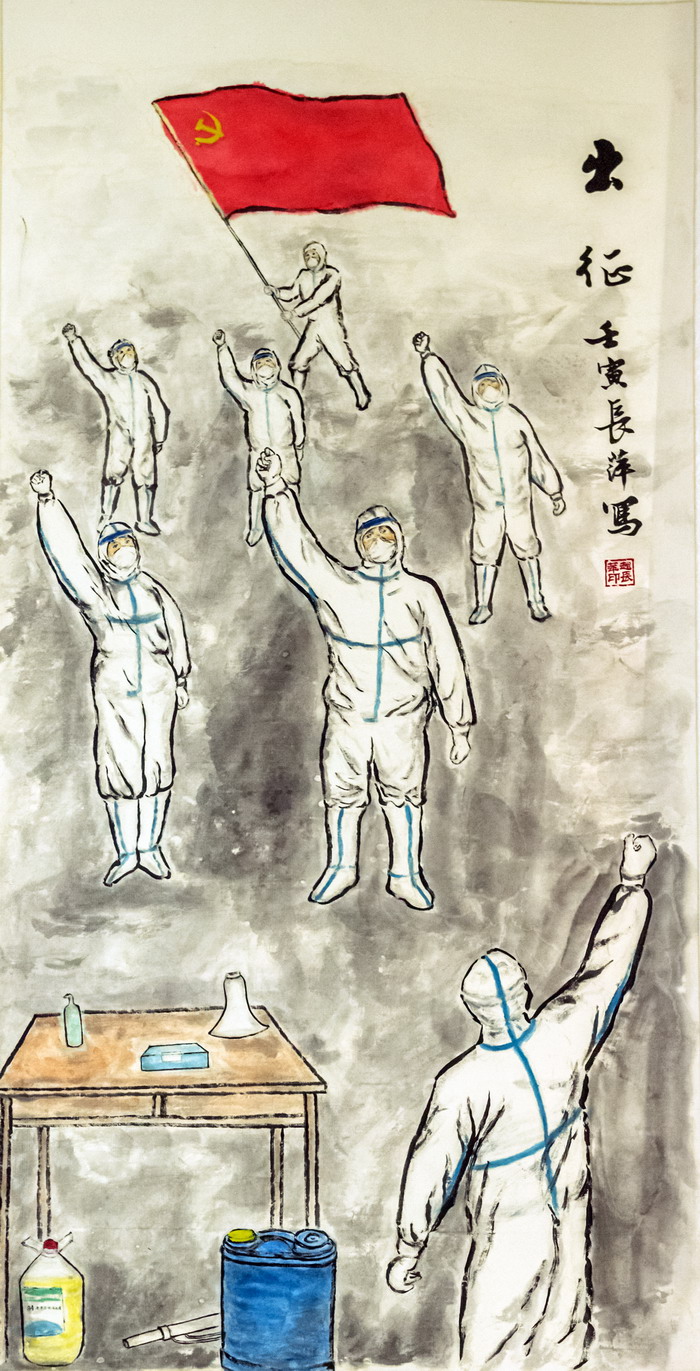 出征
壬寅長萍寫